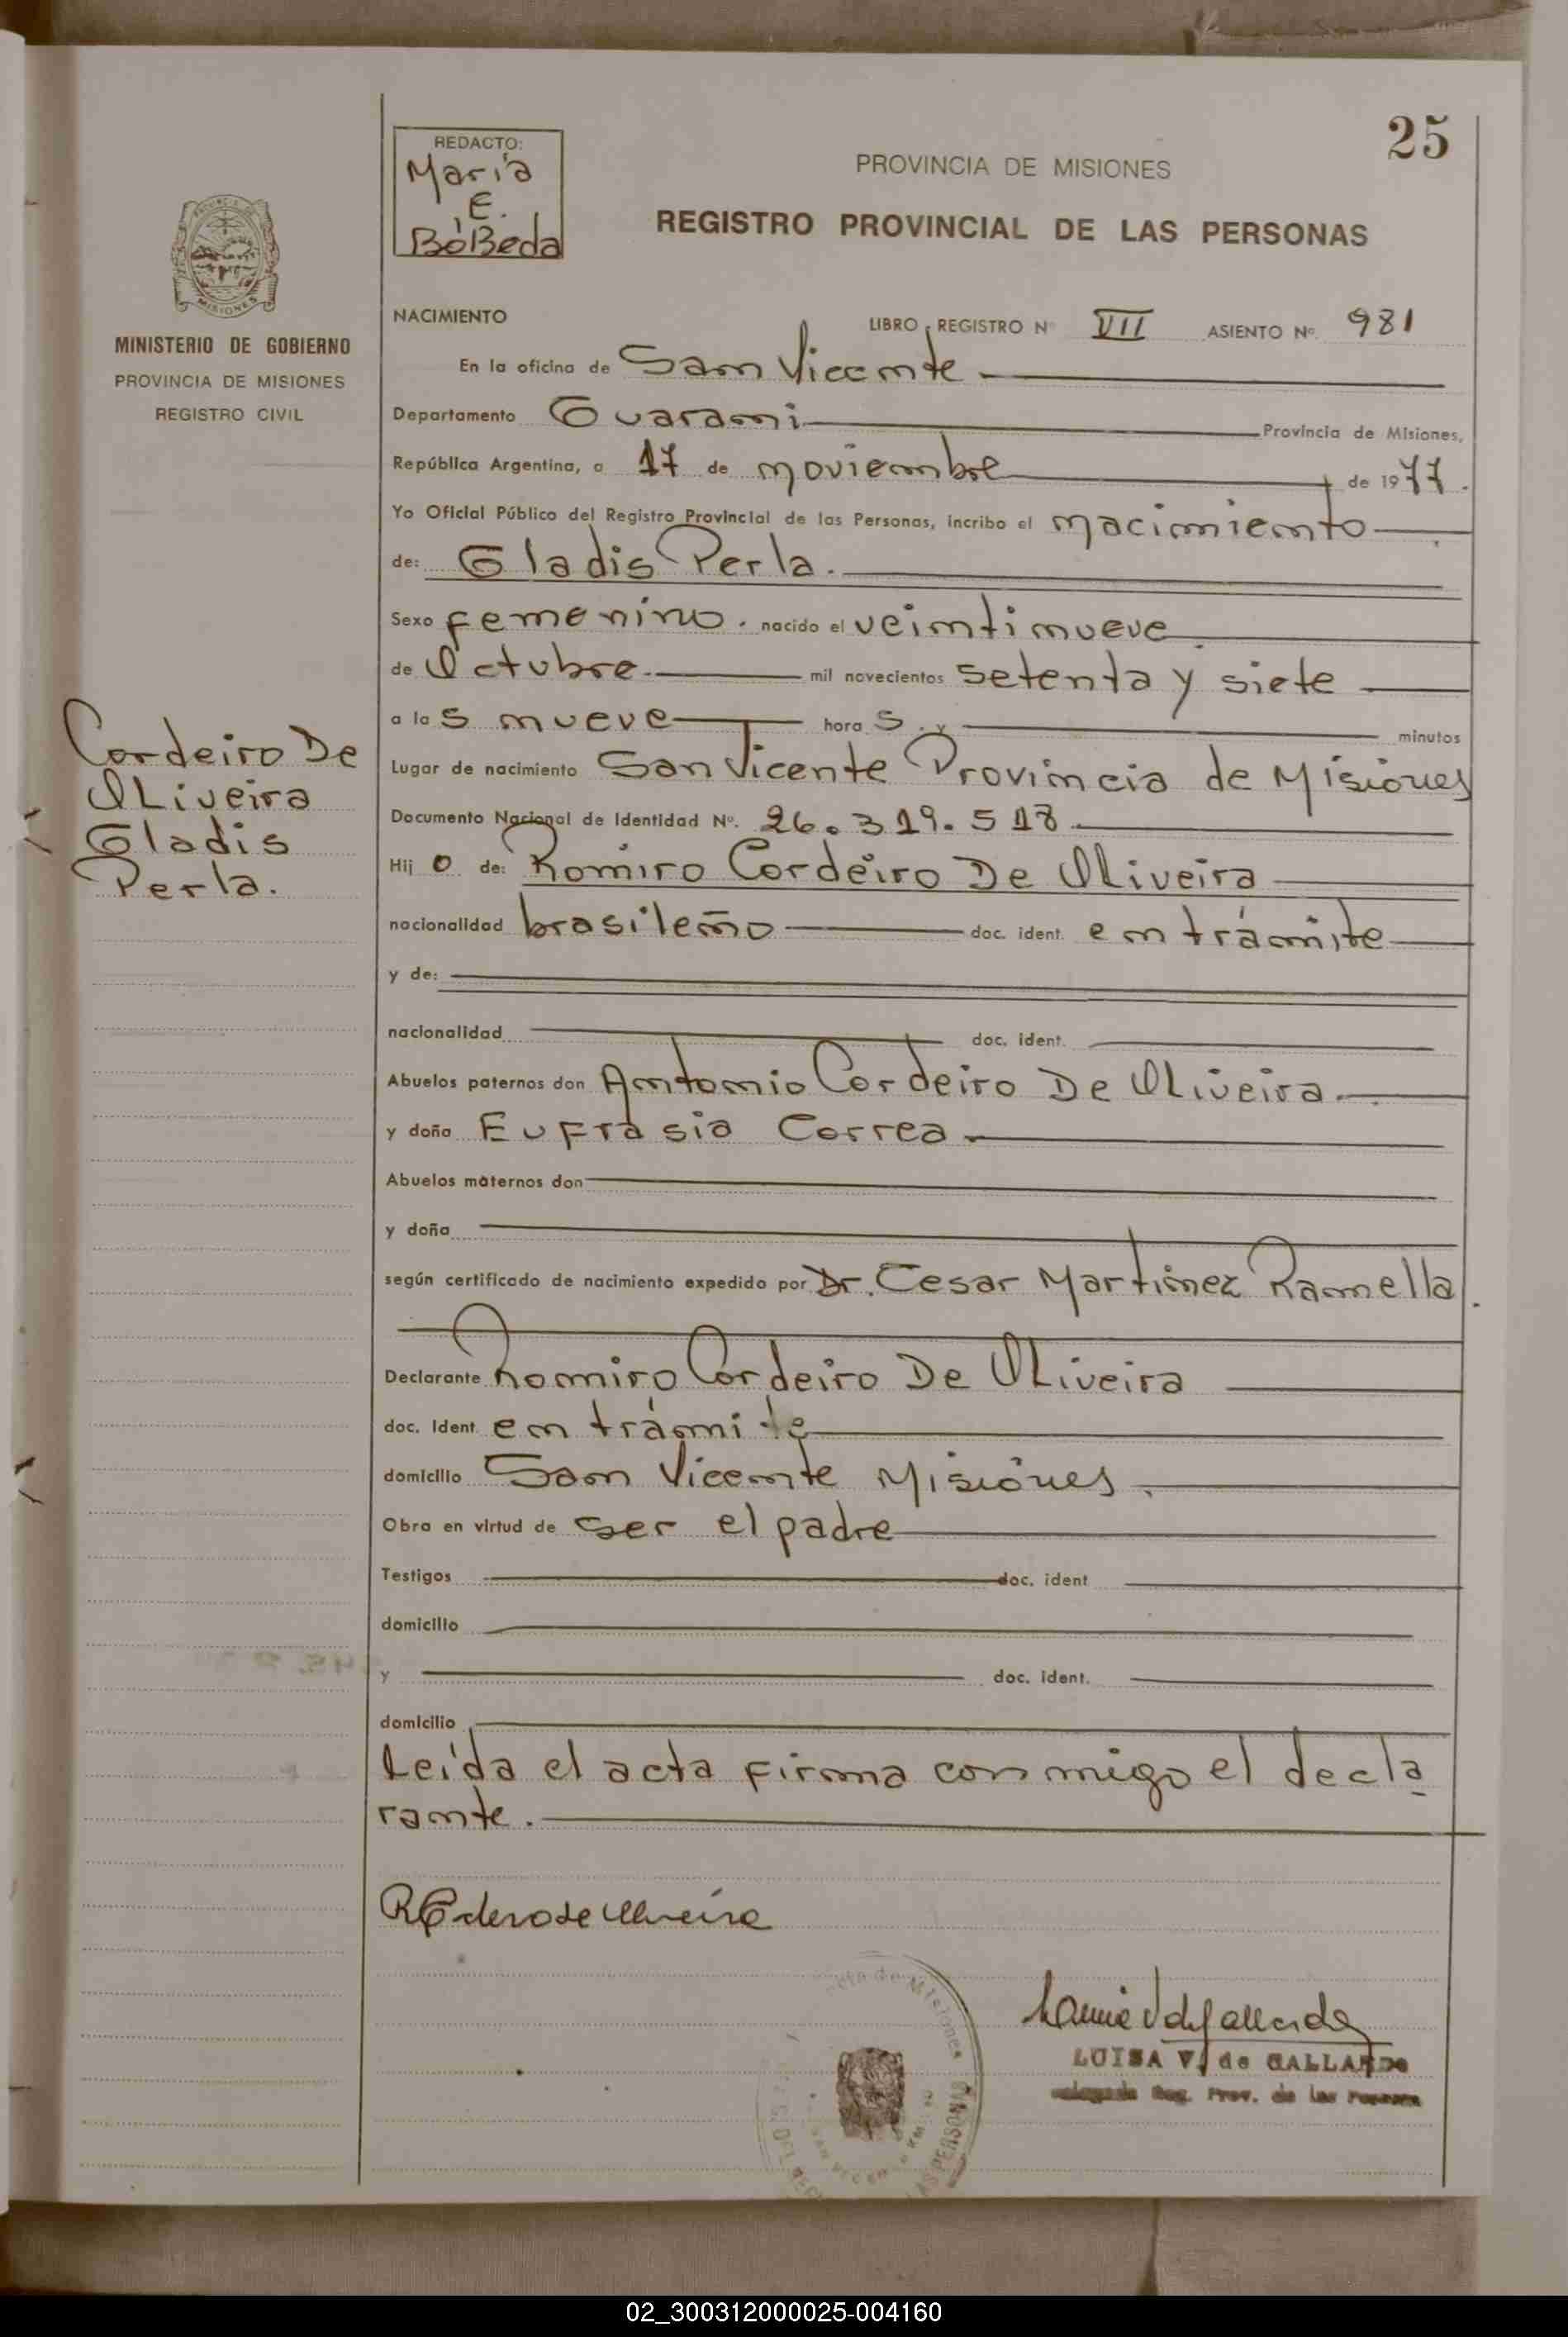 25
REDACTO:
María
E.
BóBeda
PROVINCIA DE MISIONES
REGISTRO PROVINCIAL DE LAS PERSONAS
MISIONES
MINISTERIO DE GOBIERNO
PROVINCIA DE MISIONES
REGISTRO CIVIL
NACIMIENTO
LIBRO, REGISTRO Nº VII ASIENTO Nº. 981
En la oficina de San Vicente
Departamento Guarani Provincia de Misiones,
República Argentina, a 17 de noviembre de 1977.
Yo Oficial Público del Registro Provincial de las Personas, incribo el nacimiento
de: Gladis Perla.
Sexo femenino. nacido el veintinueve
de Octubre. mil novecientos setenta y siete
a las nueve horas. y minutos
Lugar de nacimiento San Vicente Provincia de Misiones
Documento Nacional de Identidad Nº. 26.319.518
Hijo de: Romiro Cordeiro De Oliveira
nacionalidad brasileño doc. ident. en trámite
y de:
nacionalidad doc. ident.
Abuelos paternos don Antonio Cordeiro De Oliveira.
y doña Eufrasia Correa.
Abuelos maternos don
y doña
según certificado de nacimiento expedido por Dr. Cesar Martinez Ramella.
Declarante Romiro Cordeiro De Oliveira
doc. Ident. en trámite
domicilio San Vicente Misiones.
Obra en virtud de ser el padre
Testigos doc. ident
domicilio
y doc. ident.
domicilio
Leída el acta firma conmigo el decla
rante.
Cordeiro De
Oliveira
Gladis
Perla.
LUISA V. de GALLARDO
Reg. Prov. de las Personas
de Misiones
PERSONAS
02_300312000025-004160